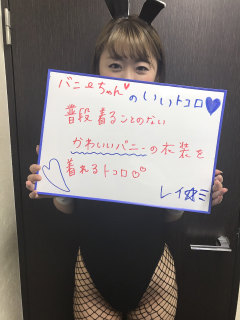 バニーちゃん♥
のいいトコロ♥
普段着ることのない
かわいいバニーの衣装を
着れるトコロ♡♡
レイ☆ミ